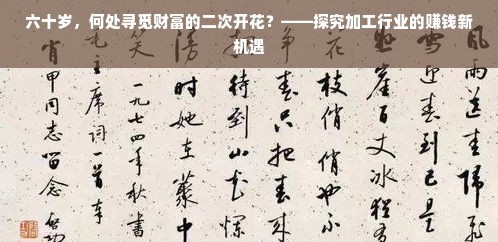 六十岁，何处寻觅财富的二次开花？——探究加工行业的赚钱新
机遇
風雨送春歸飛
雪迎春到已是
崖百丈冰猶
花枝俏俏也不
春只把春来
待到山花爛
时她在叢中
一九七四年秋書
主席词一首奉
肖甲同志留念 启功